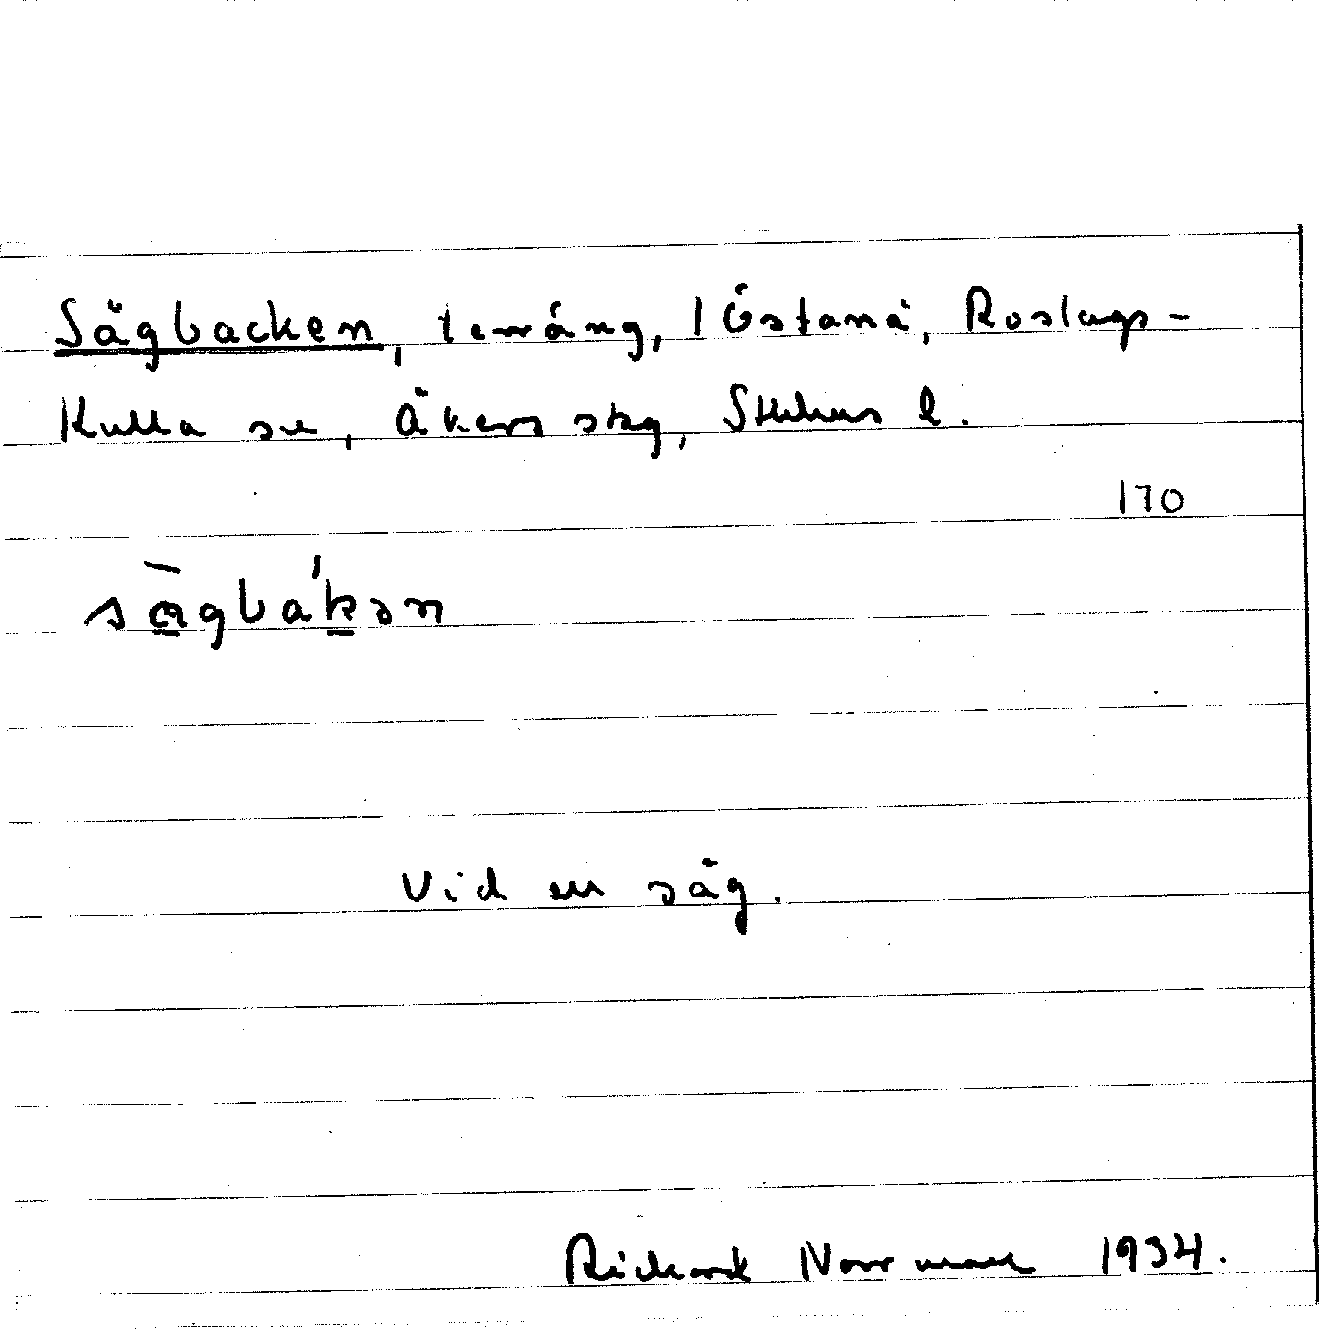 Sågbacken, terräng, 1 Östanå, Roslags-
Kulla sn, Åkers skg, Sthlms l.
170
sågbákən
Vid en såg.
Rickard Norrman 1934.